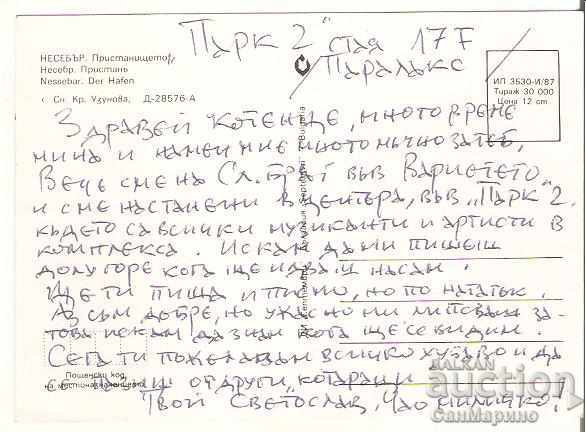 „Парк 2" стая 17 F
Паралакс
НЕСЕБЪР. Пристанището
Несебр. Пристань
Nessebar. Der Hafen
Сн. Кр. Узунова, Д-28576-А
ИП 3530-И/87
Тираж 30 000
Цена 12 cm
Здравей котенце, много време
мина и на мен ми е много мъчно за теб,
Вече сме на Сл. бряг във Вариетето
и сме настанени в центъра, във „Парк" 2.
където са всички музиканти и артисти в
комплекса. Искам да ми пишеш
долу горе кога ще идваш насам.
Ще ти пиша и писмо, но по нататък.
Аз съм добре, но ужасно ми липсваш за-
това искам да знам кога ще се видим.
Сега ти пожелавам всичко хубаво и да
се пазиш от други котараци
Твой Светослав, Чао миличко!
Пощенски код
на местоназначението
БАЛКАН
auction
СанМарино